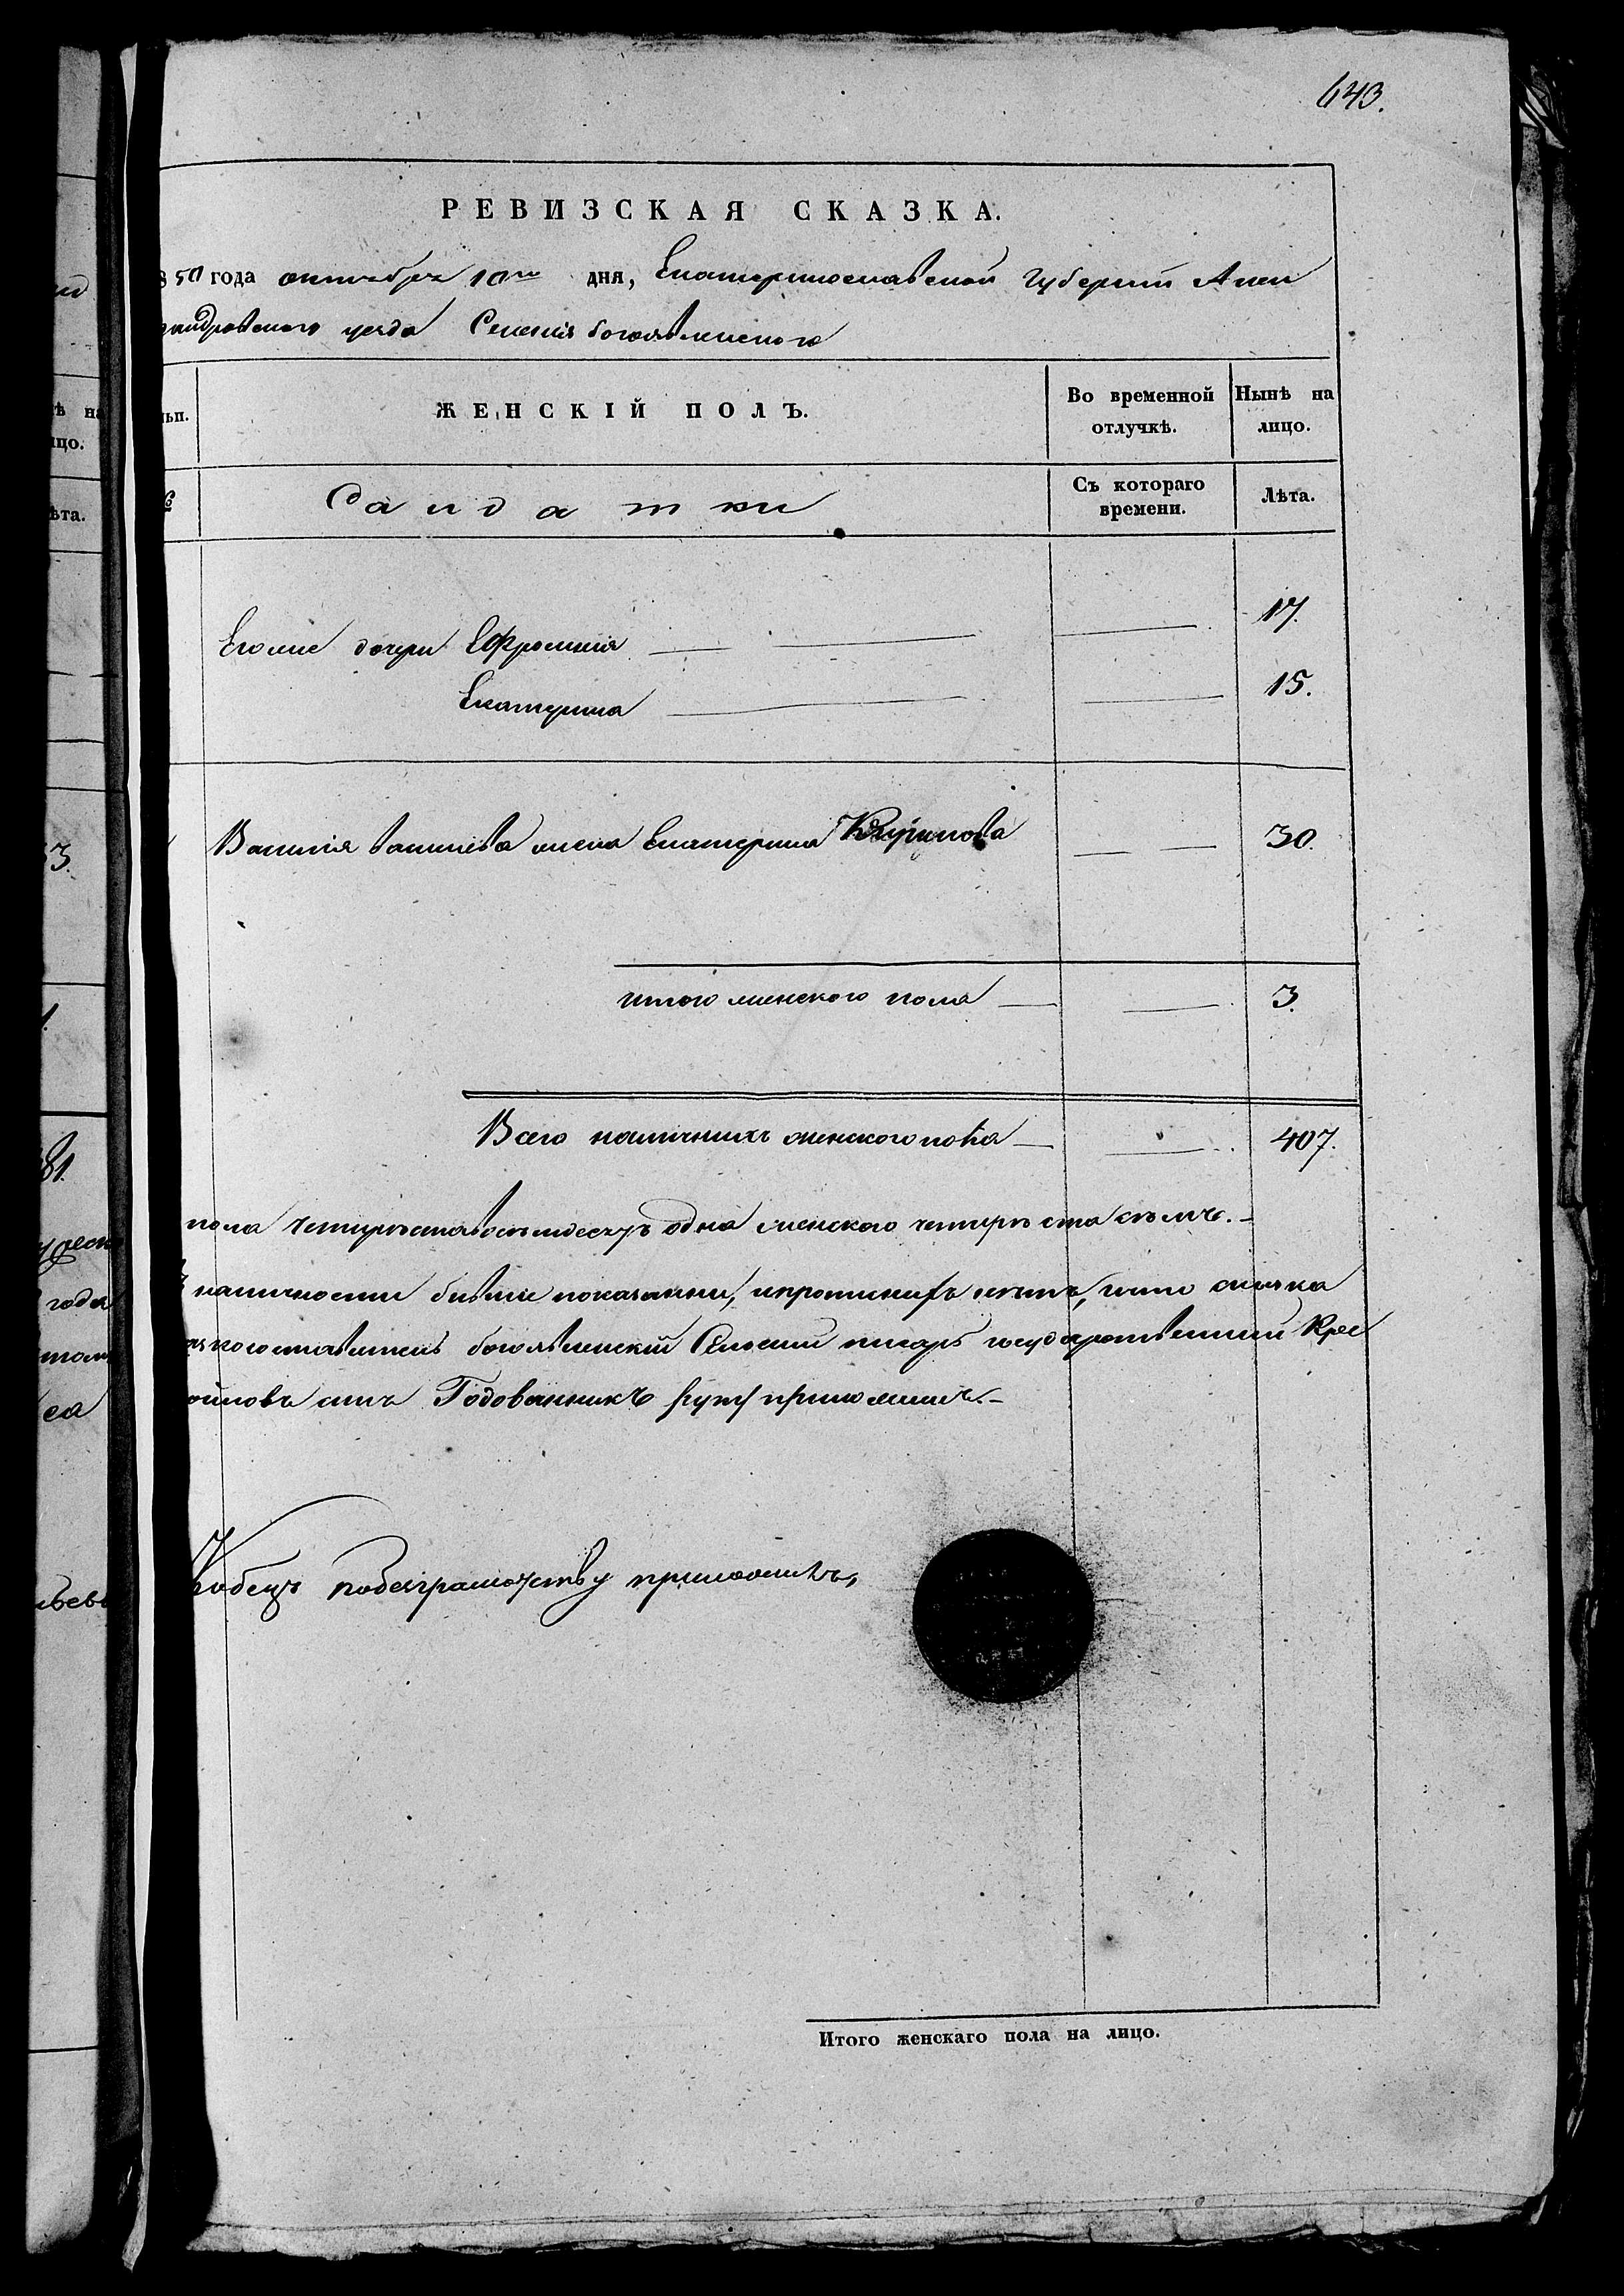 643.
РЕВИЗСКАЯ СКАЗКА.
850 года октября 10го дня, Екатеринославской Губернии Алек
сандровского уезда Селения богоявленского
ЖЕНСКІЙ ПОЛЪ.
Во временной отлучкѣ.
Нынѣ на лицо.
Салдатки
Съ котораго времени.
Лѣта.
Егоже дочери Ефросинія 17.
Екатерина 15.
Василія васильева жена Екатерина 30.
итого женского пола 3.
Всего наличнихъ женского пола 407.
пола четыреста восемдесятъ одна женского четыреста семь.-
наличности бывше показанни, и
богоявленскій Сельский писарь государственний Крес
синъ Годованникъ руку приложилъ.-
Кобецъ побезграмотству приложилъ,
Итого женскаго пола на лицо.
нѣ на
лицо.
лѣта.
3.
1.
81.
года